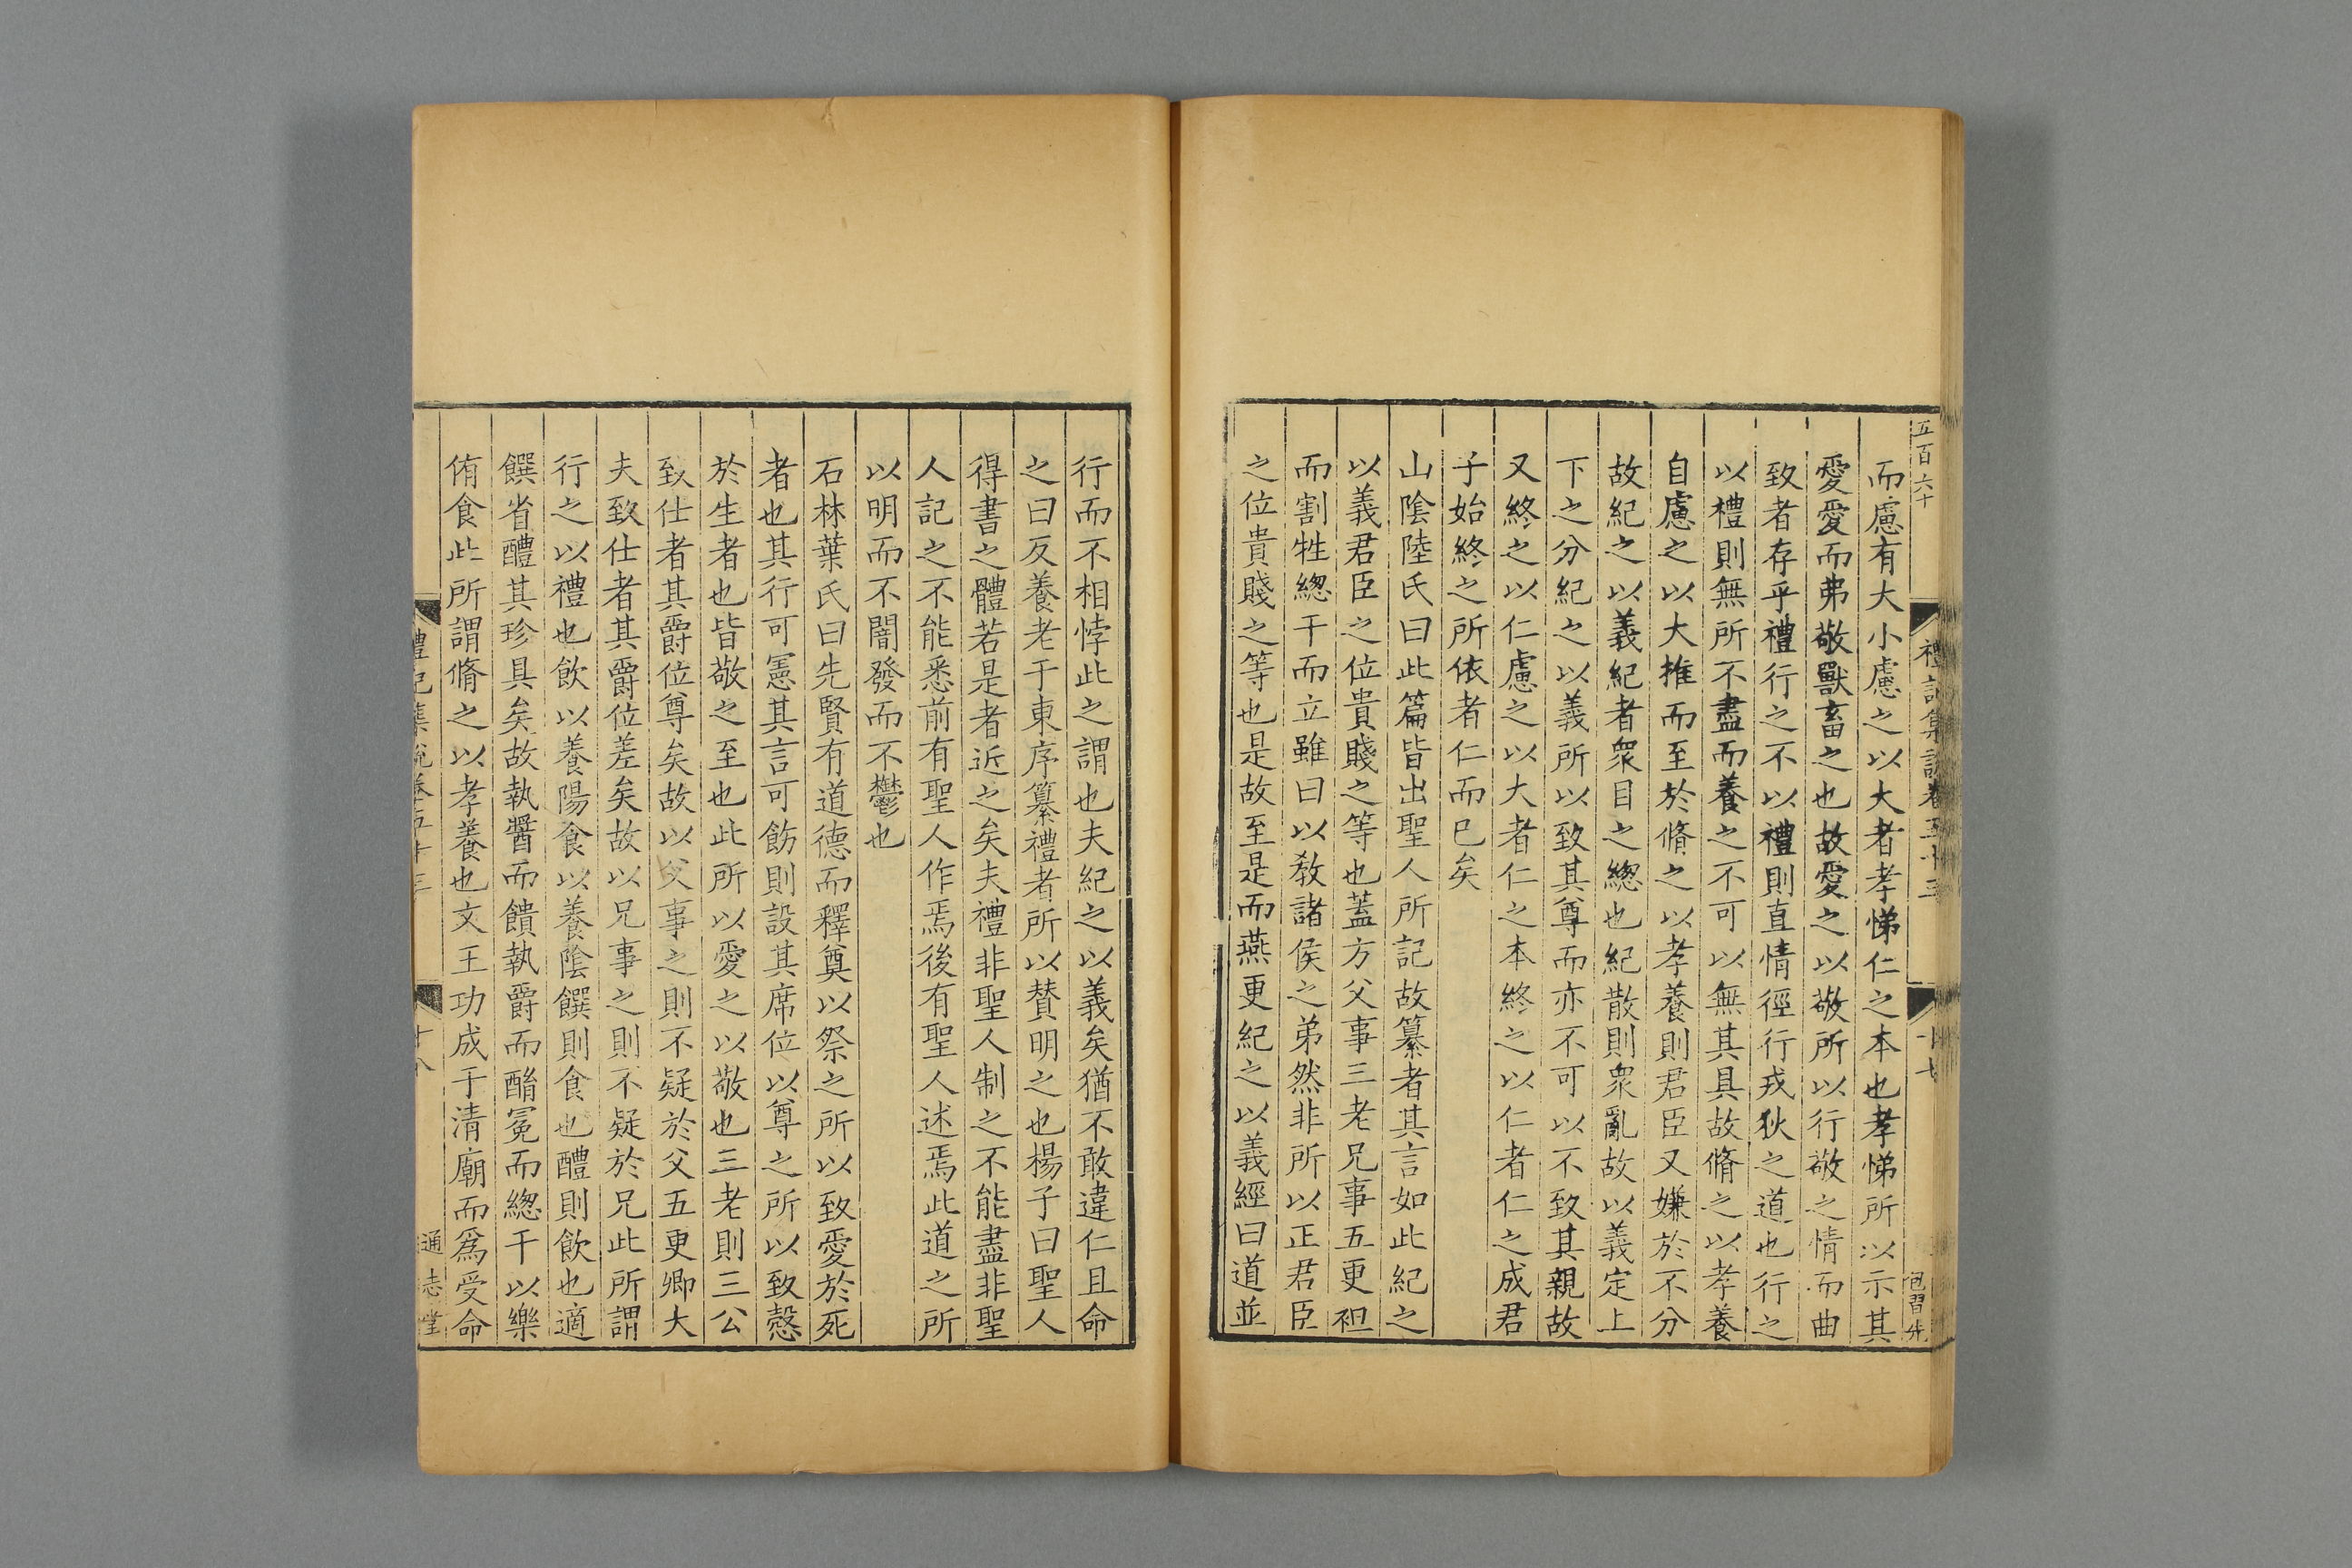 五百六十
禮記集說卷五十三
十七
而慮有大小慮之以大者孝悌仁之本也孝悌所以示其
愛愛而弗敬獸畜之也故愛之以敬所以行敬之情而曲
致者存乎禮行之不以禮則直情徑行戎狄之道也行之
以禮則無所不盡而養之不可以無其具故脩之以孝養
自慮之以大推而至於脩之以孝養則君臣又嫌於不分
故紀之以義紀者衆目之總也紀散則衆亂故以義定上
下之分紀之以義所以致其尊而亦不可以不致其親故
又終之以仁慮之以大者仁之本終之以仁者仁之成君
子始終之所依者仁而已矣
山陰陸氏曰此篇皆出聖人所記故纂者其言如此紀之
以義君臣之位貴賤之等也蓋方父事三老兄事五更袒
而割牲緫干而立雖曰以敎諸侯之弟然非所以正君臣
之位貴賤之等也是故至是而燕更紀之以義經曰道並
行而不相悖此之謂也夫紀之以義矣猶不敢違仁且命
之曰反養老于東序纂禮者所以賛明之也楊子曰聖人
得書之體若是者近之矣夫禮非聖人制之不能盡非聖
人記之不能悉前有聖人作焉後有聖人述焉此道之所
以明而不闇發而不鬱也
石林葉氏曰先賢有道德而釋奠以祭之所以致愛於死
者也其行可憲其言可飭則設其席位以尊之所以致愨
於生者也皆敬之至也此所以愛之以敬也三老則三公
致仕者其爵位尊矣故以父事之則不疑於父五更卿大
夫致仕者其爵位差矣故以兄事之則不疑於兄此所謂
行之以禮也飲以養陽食以養陰饌則食也醴則飲也適
饌省醴其珍具矣故執醬而饋執爵而酳冕而緫干以樂
侑食此所謂脩之以孝養也文王功成于清廟而爲受命
禮記集說卷五十三
十八
通志堂